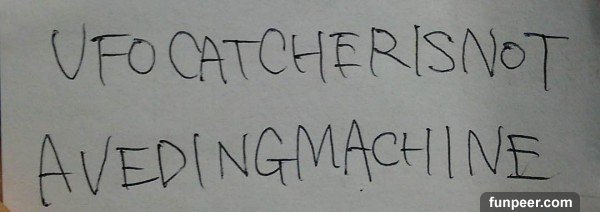 UFO CATCHER IS NOT
A VEDING MACHINE
funpeer.com